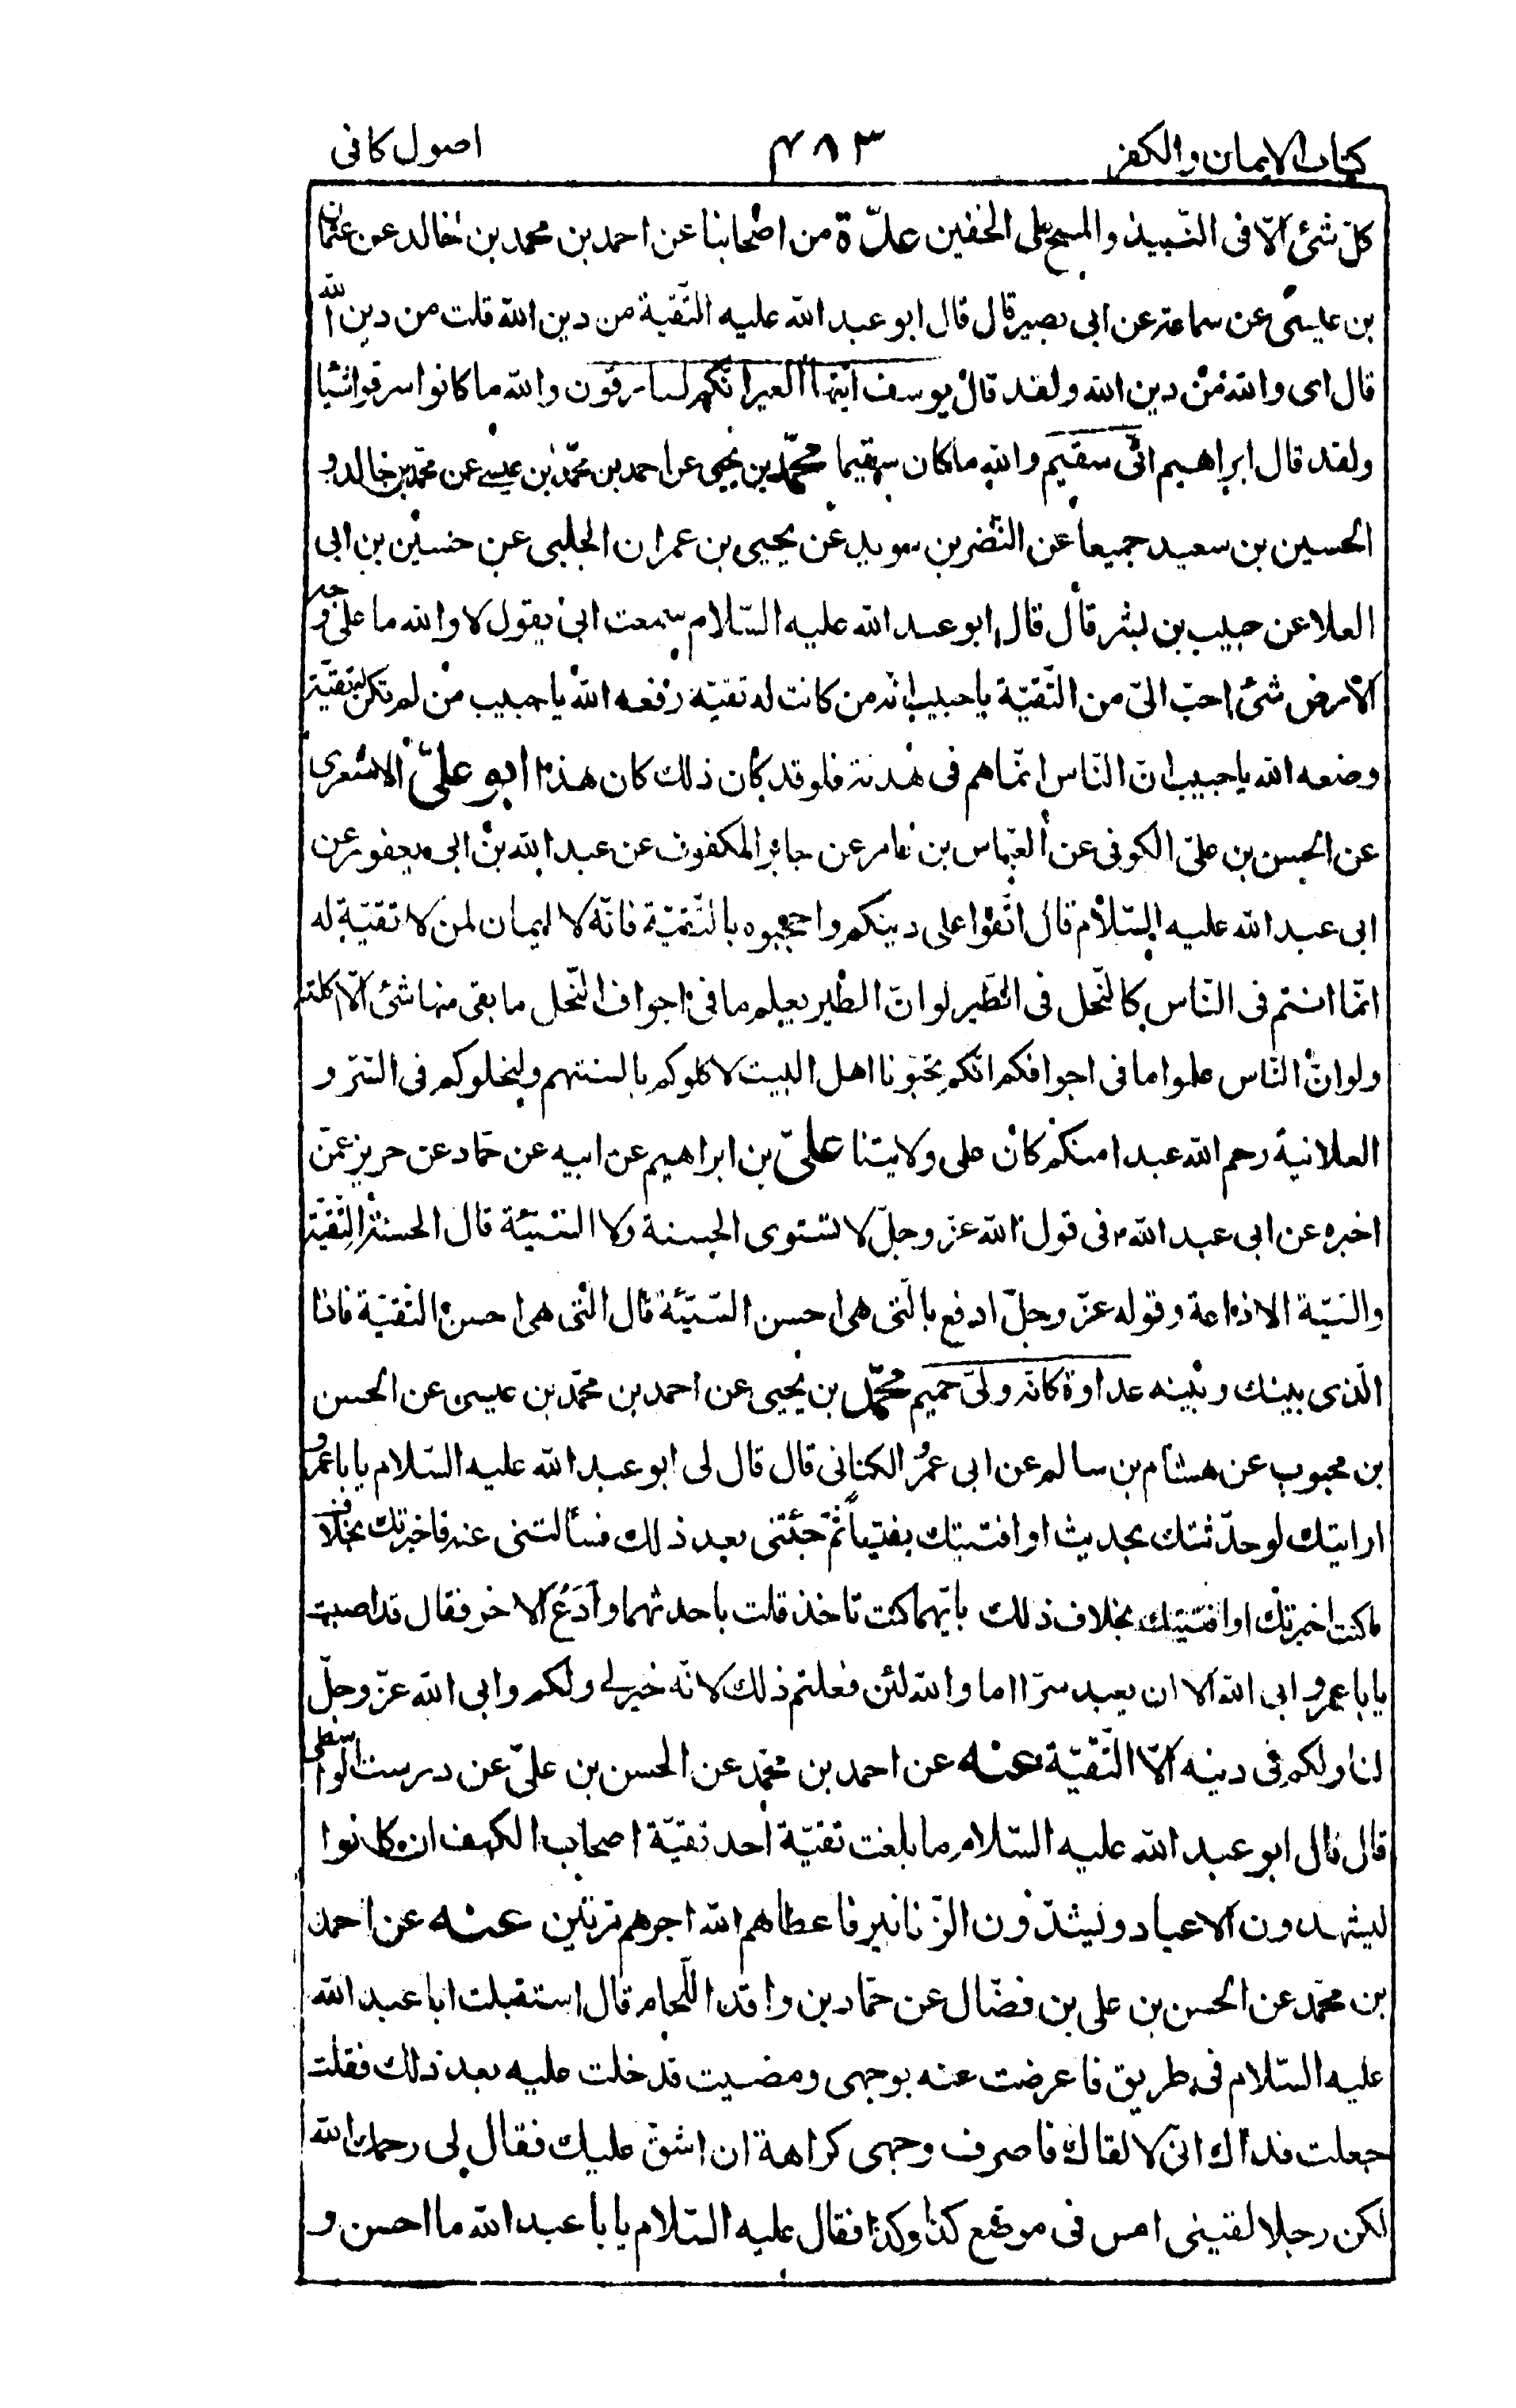 كتاب الايمان والكفر ٤٨٣ اصول كافى
كلّ شئ الّا فى النّبيذ والمسح على الخفين عدّة من اصحابنا عن احمد بن محمد بن خالد عن عثمان
بن عيسى عن سماعة عن ابى بصير قال قال ابو عبد الله عليه التّقية من دين الله قلت من دين الله
قال اى والله من دين الله ولقد قال يوسف ايّتها العير انّكم لسارقون والله ما كانوا سرقوا شيئا
ولقد قال ابراهيم انّى سقيم والله ما كان سقيما محمّد بن يحيى عن احمد بن محمّد بن عيسى عن محمّد بن خالد و
الحسين بن سعيد جميعا عن النّضر بن سويد عن يحيى بن عمران الحلبى عن حسين بن ابى
العلا عن حبيب بن بشر قال قال ابو عبد الله عليه السّلام سمعت ابى يقول لا والله ما على وجه
الارض شئ احبّ الىّ من التّقيّة يا حبيب انّه من كانت له تقيّة رفعه الله يا حبيب من لم تكن له تقيّة
وضعه الله يا حبيب انّ النّاس انّما هم فى هدنة فلو قد كان ذلك كان هذا ابو علىّ الاشعرى
عن الحسن بن علىّ الكوفى عن العبّاس بن عامر عن جابر المكفوف عن عبد الله بن ابى يعفور عن
ابى عبد الله عليه السّلام قال اتّقوا على دينكم واحجبوه بالتّقيّة فانّه لا ايمان لمن لا تقيّة له
انّما انتم فى النّاس كالنّحل فى الطّير لو انّ الطّير يعلم ما فى اجواف النّحل ما بقى منها شئ الّا اكلته
ولو انّ النّاس علموا ما فى اجوافكم انّكم تحبّونا اهل البيت لاكلوكم بالسنتهم ولنحلوكم فى السّر و
العلانية رحم الله عبدا منكم كان على ولايتنا علىّ بن ابراهيم عن ابيه عن حمّاد عن حريز عمّن
اخبره عن ابى عبد الله ع فى قول الله عزّ وجلّ لا تستوى الحسنة ولا السّيّئة قال الحسنة التّقيّة
والسّيّة الاذاعة وقوله عزّ وجلّ ادفع بالّتى هى احسن السّيّئة قال الّتى هى احسن التّقيّة فاذا
الّذى بينك وبينه عداوة كانّه ولىّ حميم محمّد بن يحيى عن احمد بن محمّد بن عيسى عن الحسن
بن محبوب عن هشام بن سالم عن ابى عمرو الكنانى قال قال لى ابو عبد الله عليه السّلام يا با عمرو
ارايتك لو حدّثتك بحديث او افتيتك بفتيا ثمّ جئتنى بعد ذلك فسألتنى عنه فاخبرتك بخلاف
ما كنت اخبرتك او افتيتك بخلاف ذلك بايّهما كنت تاخذ قلت باحدثهما وأدَعُ الاخر فقال قد اصبت
يا با عمرو ابى الله الا ان يعبد سرّا اما والله لئن فعلتم ذلك لانّه خير لى ولكم وابى الله عزّ وجلّ
لنا ولكم فى دينه الّا التّقيّة عنه عن احمد بن محمّد عن الحسن بن علىّ عن درست الواسطى
قال قال ابو عبد الله عليه السّلام ما بلغت تقيّة احد تقيّة اصحاب الكهف ان كانوا
ليشهدون الاعياد ويشدّون الزّنانير فاعطاهم الله اجرهم مرّتين عنه عن احمد
بن محمّد عن الحسن بن على بن فضّال عن حمّاد بن واقد اللّحام قال استقبلت ابا عبد الله
عليه السّلام فى طريق فاعرضت عنه بوجهى ومضيت فدخلت عليه بعد ذلك فقلت
جعلت فداك انّى لالقاك فاصرف وجهى كراهة ان اشقّ عليك فقال لى رحمك الله
لكن رجلا لقينى امس فى موضع كذا وكذا فقال عليه السّلام يا با عبد الله ما احسن و